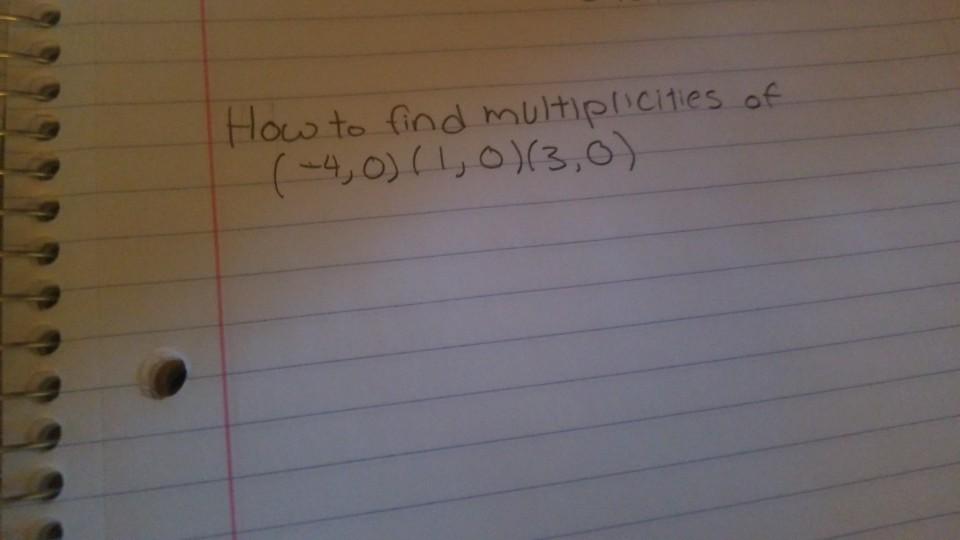 How to find multiplicities of
(-4,0)(1,0)(3,0)